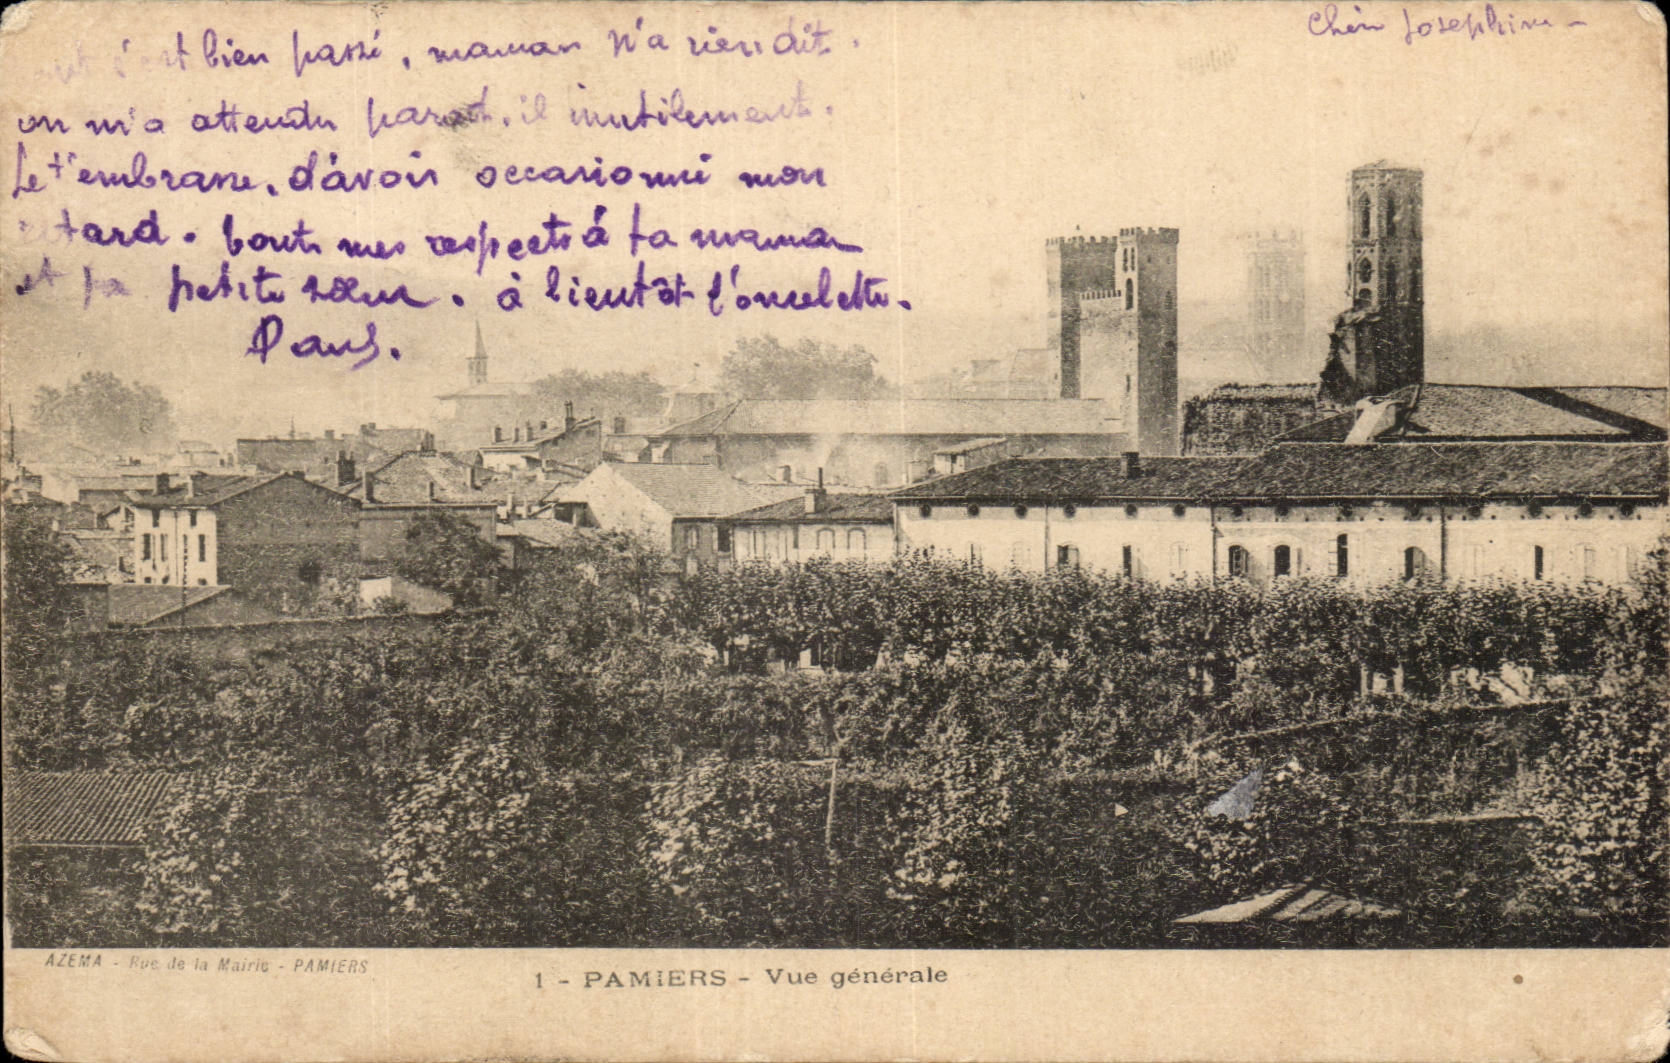 Cher Josephine -
tout s'est bien passé, maman n'a rien dit.
on m'a attendu parait-il inutilement.
Je t'embrasse, d'avoir occasionné mon
retard. tout mes respects à ta maman
et ta petite sœur. à bientôt l'omelette.
AZEMA - Rue de la Mairie - PAMIERS
1 - PAMIERS - Vue générale